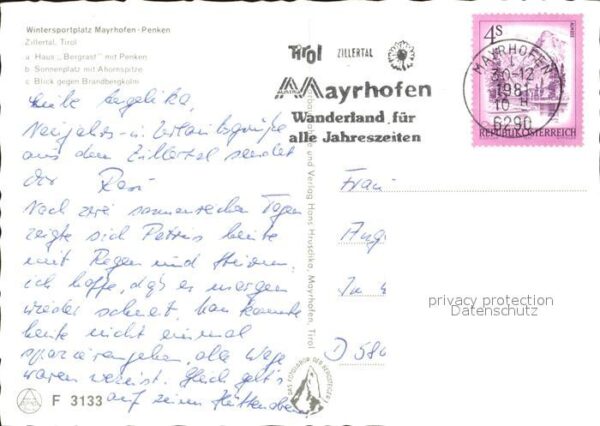 Wintersportplatz Mayrhofen-Penken
Zillertal, Tirol
a Haus „Bergrast" mit Penken
b Sonnenplatz mit Ahornspitze
c Blick gegen Brandbergkolm
Liebe Angelika,
Neujahrs- u. Urlaubsgrüße
aus dem Zillertal sendet
Dir
Nach zwei sonnenreichen Tagen
zeigte sich Petrus heute
mit Regen und
ich hoffe, daß es morgen
wieder schneit. Man konnte
heute nicht einmal
spazierengehen, alle Wege
waren vereist. Gleich geht's
auf zum Hüttenabend
F 3133
Verlag Hans Hruschka, Mayrhofen, Tirol
DAS EDELWEISS DER BERGSTEIGER
Tirol ZILLERTAL
Mayrhofen
Wanderland für
alle Jahreszeiten
4S
REPUBLIK ÖSTERREICH
MAYRHOFEN
30-12
1981
10 H
6290
Frau
Ang
In
D 586
privacy protection
Datenschutz